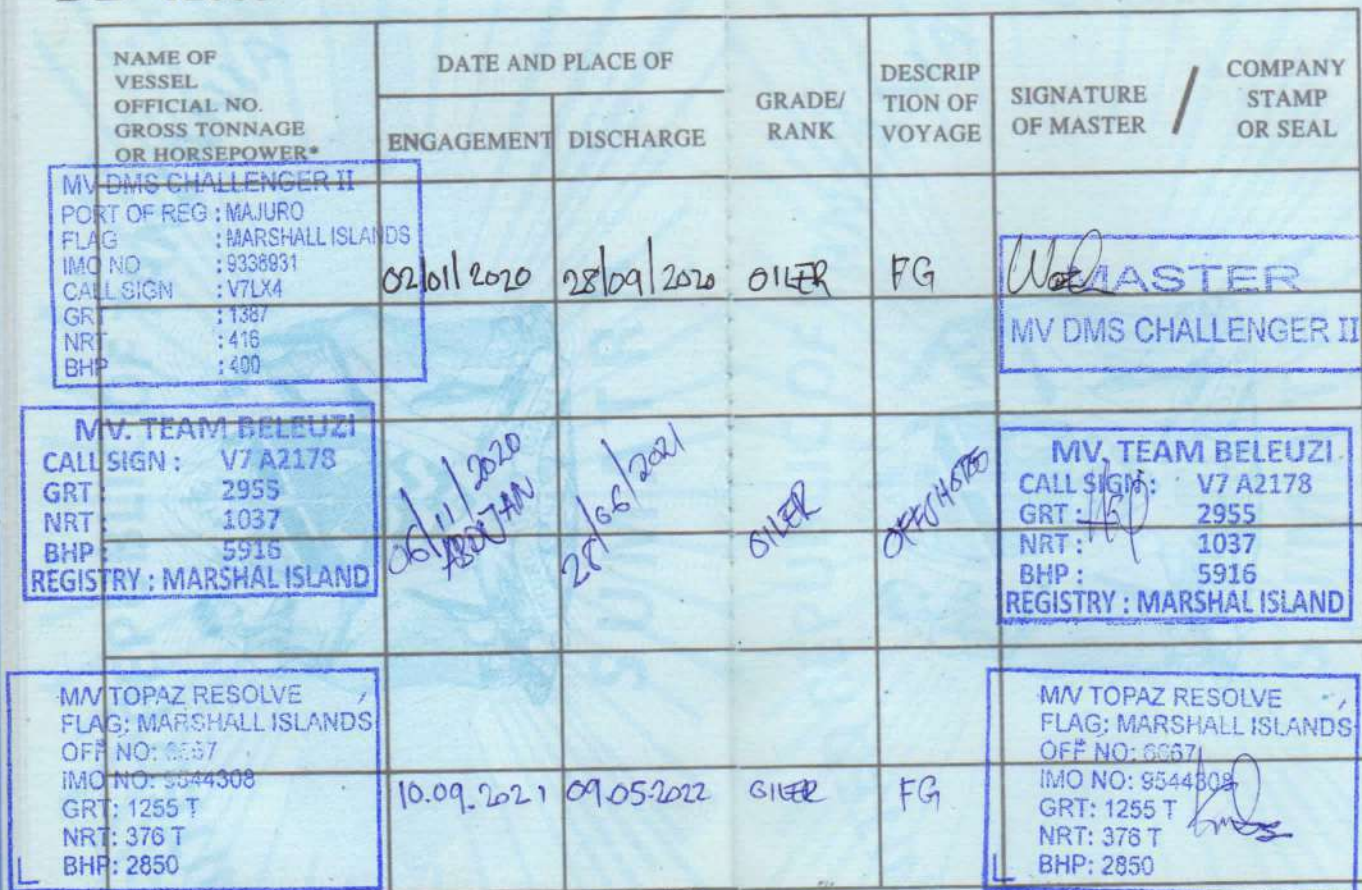 NAME OF
VESSEL
OFFICIAL NO.
GROSS TONNAGE
OR HORSEPOWER*
DATE AND PLACE OF
ENGAGEMENT DISCHARGE
GRADE/
RANK
DESCRIP
TION OF
VOYAGE
SIGNATURE
OF MASTER /
COMPANY
STAMP
OR SEAL
MV DMS CHALLENGER II
PORT OF REG : MAJURO
FLAG : MARSHALL ISLANDS
IMO NO : 9338931
CALL SIGN : V7LX4
GRT : 1387
NRT : 416
BHP : 400
02/01/2020 28/09/2020 OILER FG
MASTER
MV DMS CHALLENGER II
MV. TEAM BELEUZI
CALL SIGN : V7 A2178
GRT : 2955
NRT : 1037
BHP : 5916
REGISTRY : MARSHAL ISLAND
06/11/2020
ABIDJAN
28/06/2021
OILER
OFFSHORE
MV. TEAM BELEUZI
CALL SIGN : V7 A2178
GRT : 2955
NRT : 1037
BHP : 5916
REGISTRY : MARSHAL ISLAND
M/V TOPAZ RESOLVE
FLAG: MARSHALL ISLANDS
OFF NO:
IMO NO: 9544308
GRT: 1255 T
NRT: 376 T
BHP: 2850
10.09.2021 09.05.2022 OILER FG
M/V TOPAZ RESOLVE
FLAG: MARSHALL ISLANDS
OFF NO:
IMO NO: 9544308
GRT: 1255 T
NRT: 376 T
BHP: 2850